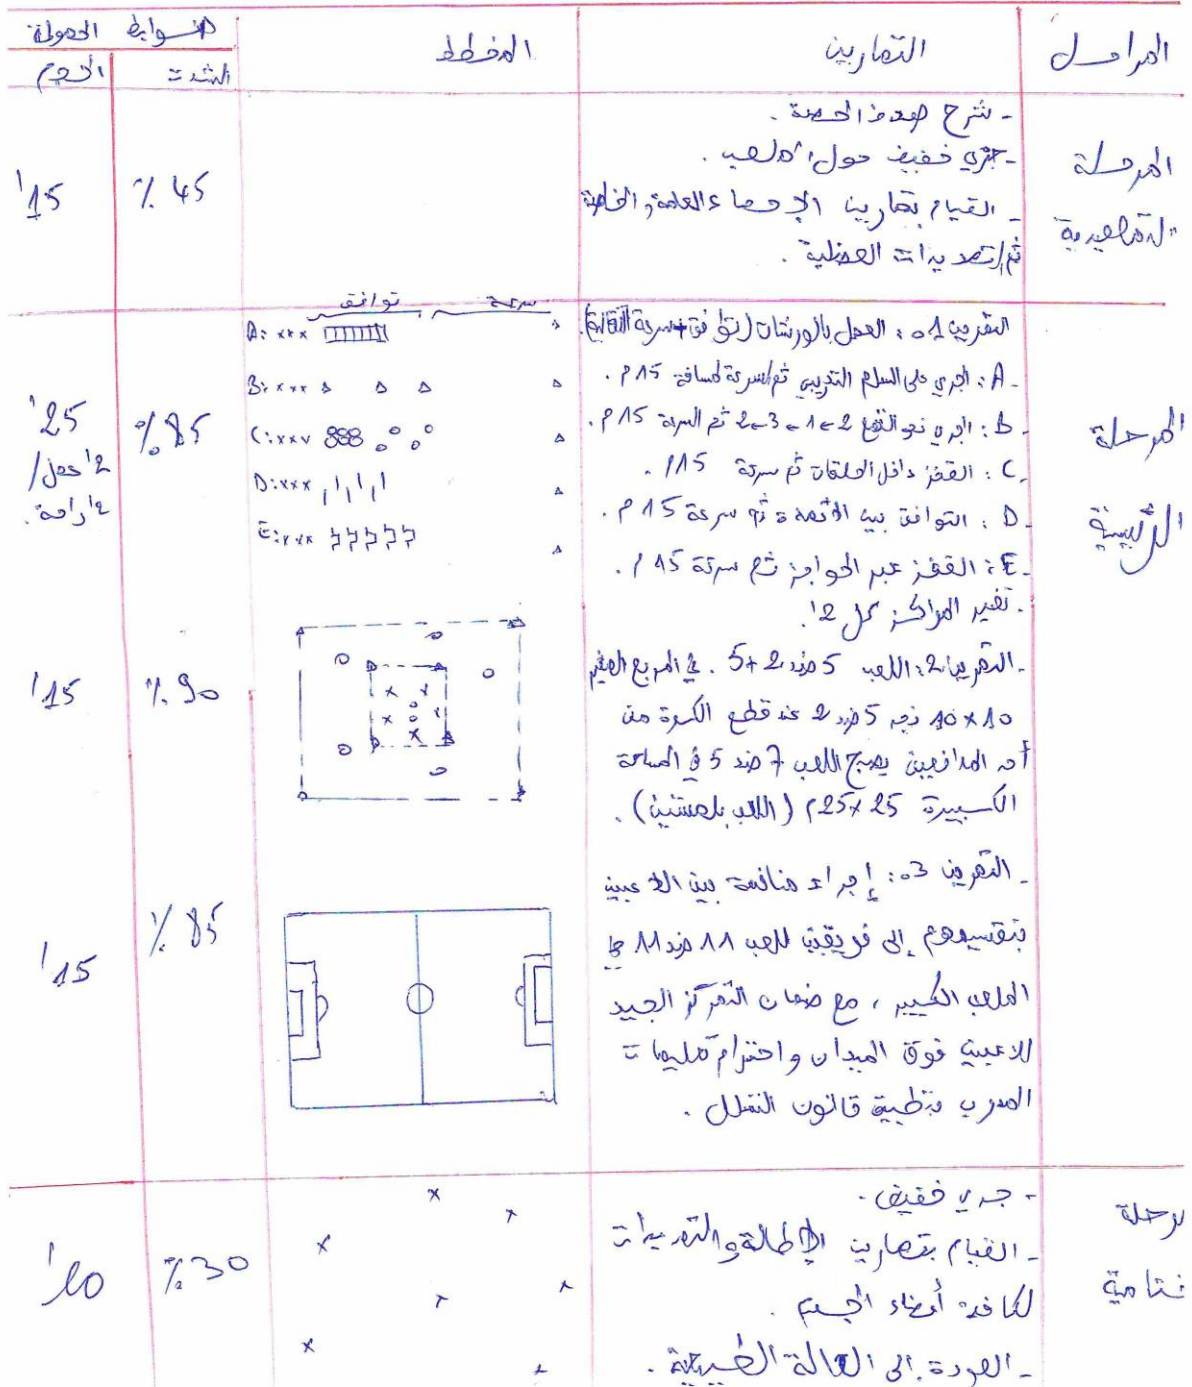 المراحل التمارين المخطط ضوابط الحمولة
الشدة الحجم
المرحلة التمهيدية
- شرح هدف الحصة .
- جري خفيف حول الملعب .
- القيام بتمارين الإحماء العامة والخاصة
ثم التمديدات العضلية .
45 %
15'
المرحلة الرئيسية
التمرين 01 : العمل بالورشات (توافق + سرعة انتقالية).
- A : الجري على السلم التدريبي ثم السرعة لمسافة 15 م .
- B : الجري نحو القمع 2-1-3-2 ثم السرعة 15 م .
- C : القفز داخل الحلقات ثم سرعة 15 م .
- D : التوافق بين الأعمدة ثم سرعة 15 م .
- E : القفز عبر الحواجز ثم سرعة 15 م .
. تغيير المراكز كل 2'.
توافق سرعة
A: xxx
B: xxx
C: xxx
D: xxx
E: xxx
85 %
25'
2' عمل /
2' راحة .
- التمرين 2: اللعب 5 ضد 2+5 . في المربع الصغير
10×10 نجد 5 ضد 2 عند قطع الكرة من
أحد المدافعين يصبح اللعب 7 ضد 5 في المساحة
الكبيرة 25×25 م (اللعب بلمستين) .
90 %
15'
- التمرين 03 : إجراء منافسة بين اللاعبين
بتقسيمهم إلى فريقين للعب 11 ضد 11 في
الملعب الكبير ، مع ضمان التمركز الجيد
للاعبين فوق الميدان واحترام تعليمات
المدرب وتطبيق قانون التسلل .
85 %
15'
مرحلة
ختامية
- جري خفيف .
- القيام بتمارين الإطالة والتمديدات
لكافة أعضاء الجسم .
- العودة إلى الحالة الطبيعية .
30 %
10'